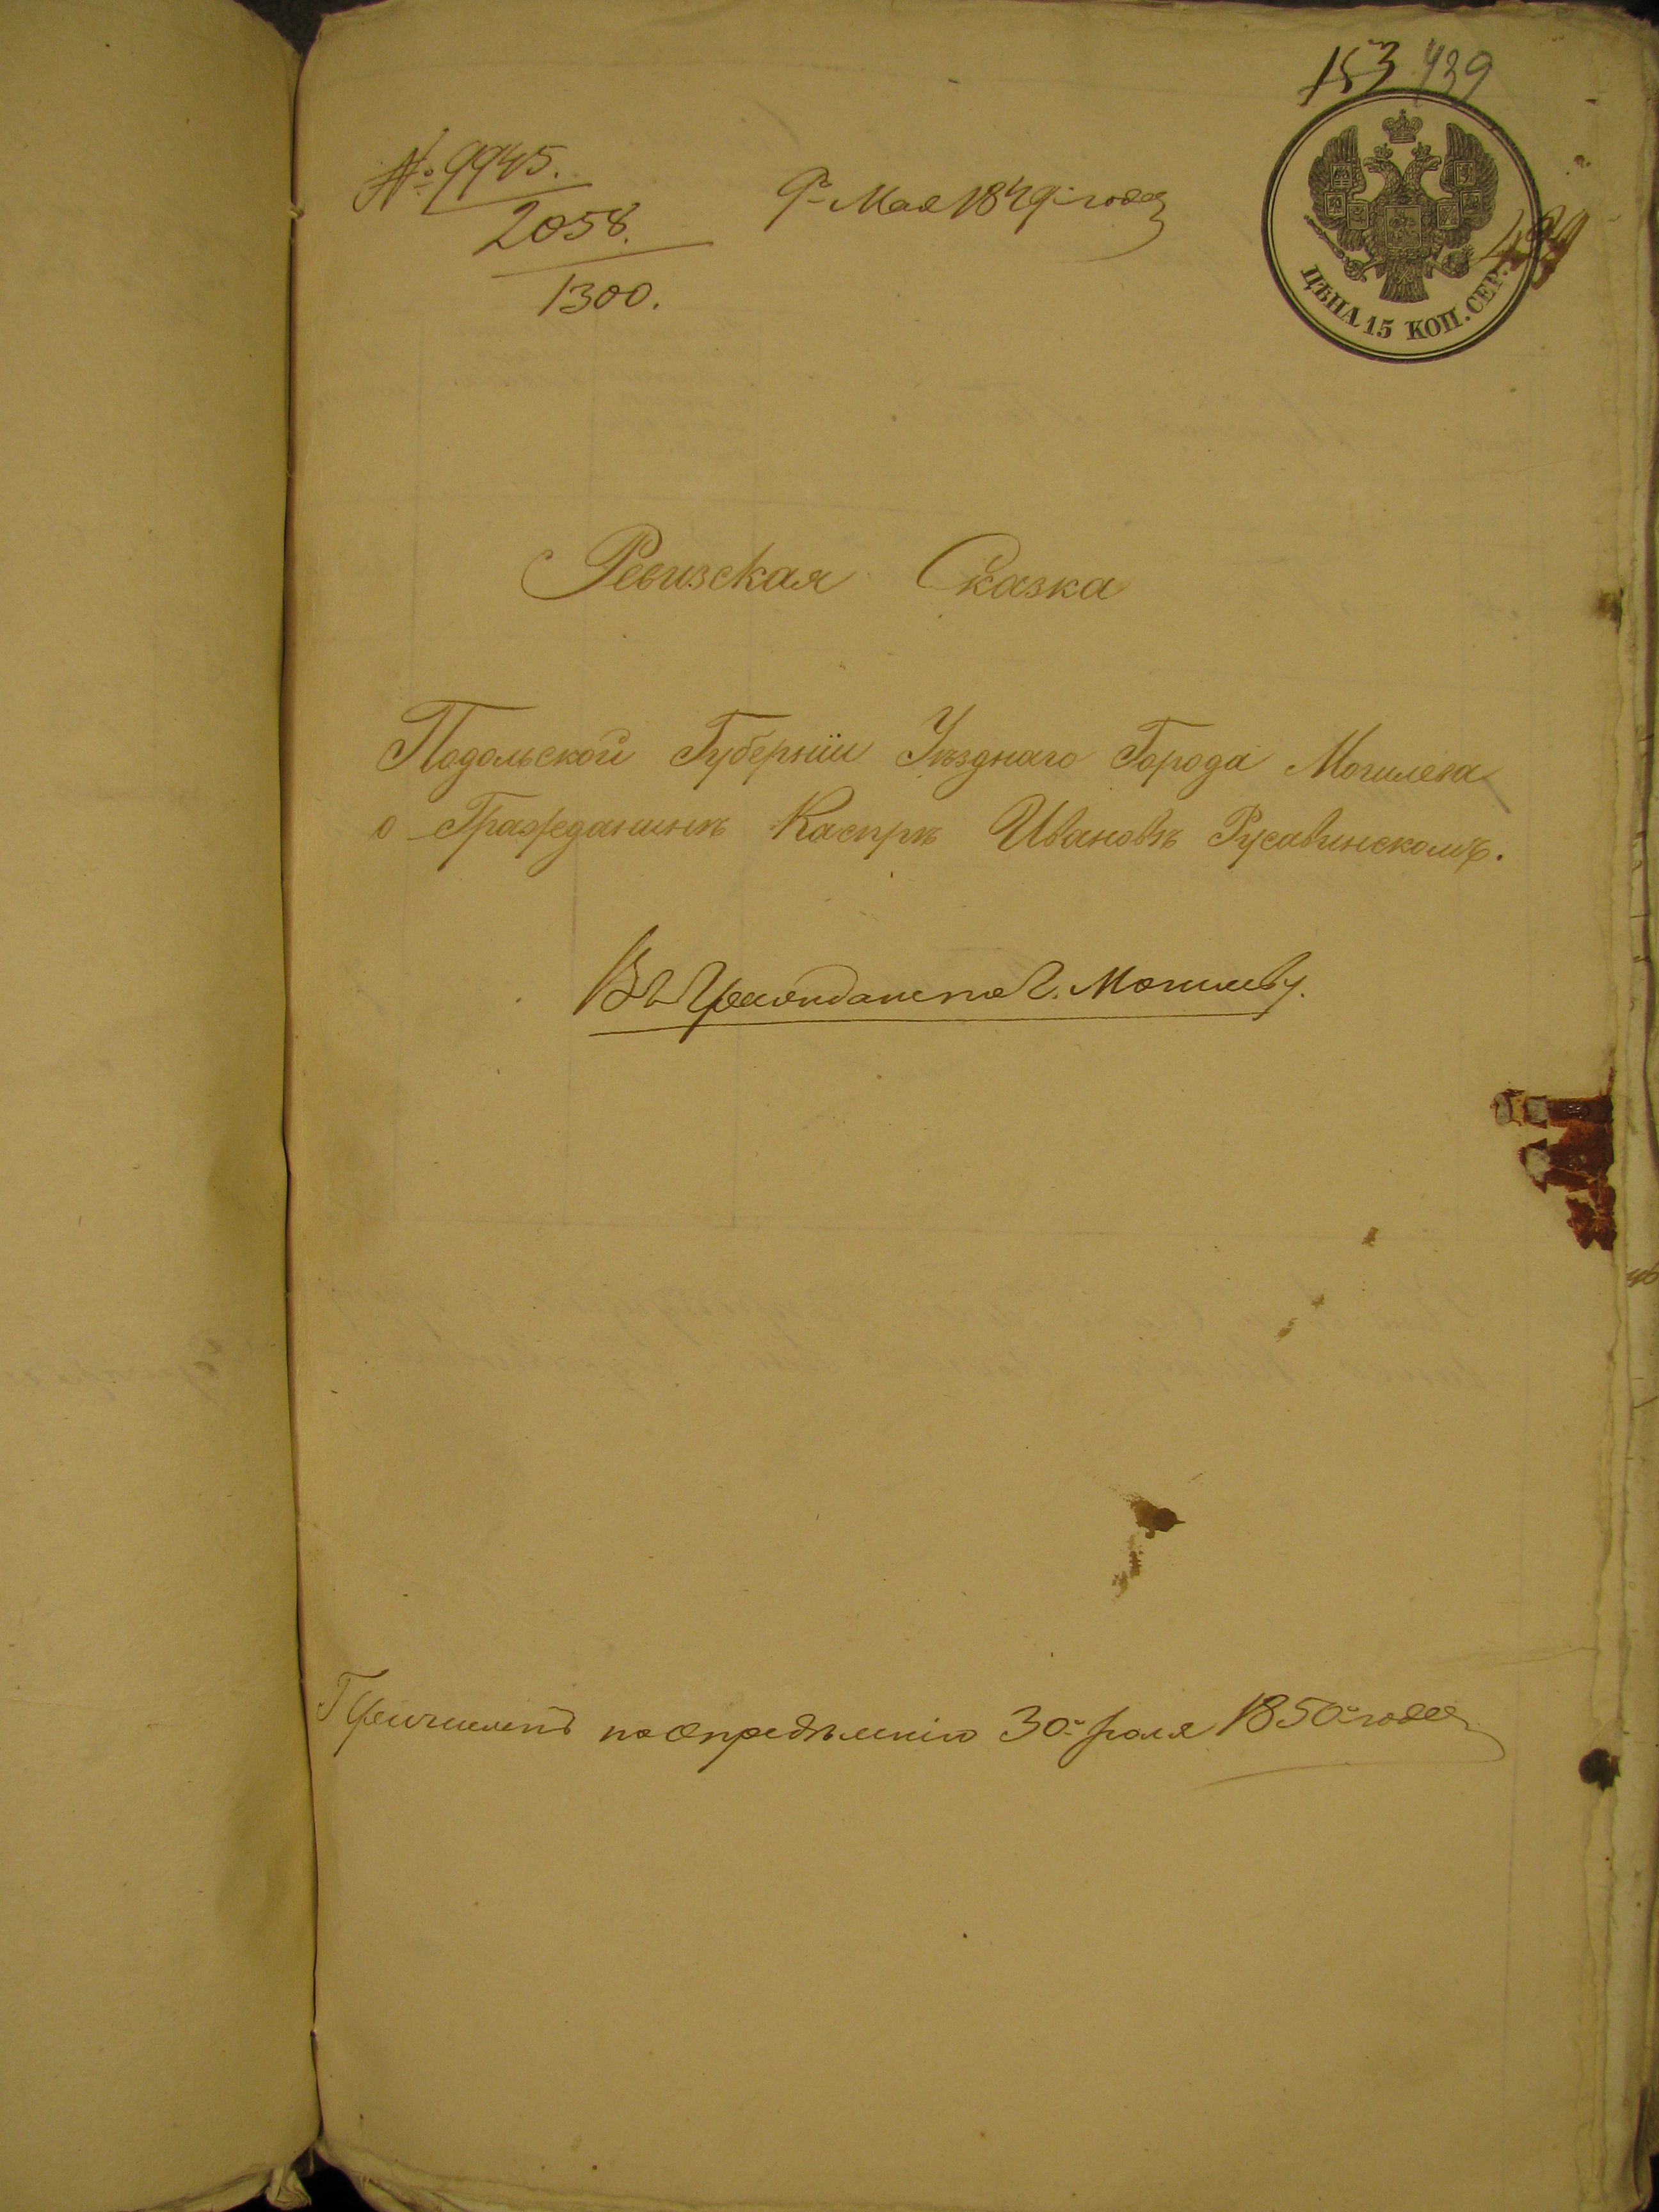 153 439
№ 9945.
2058.
1300.
9го Мая 1849го года
439
ЦѢНА 15 КОП. СЕР.
Ревизская Сказка
Подольской Губерніи Уѣзднаго Города Могилева
о Гражданинѣ Каспрѣ Ивановѣ Русавинскомъ.
Въ Гражданепо г. Могилеву.
Причисленъ по опредѣленію 30го 1850го года